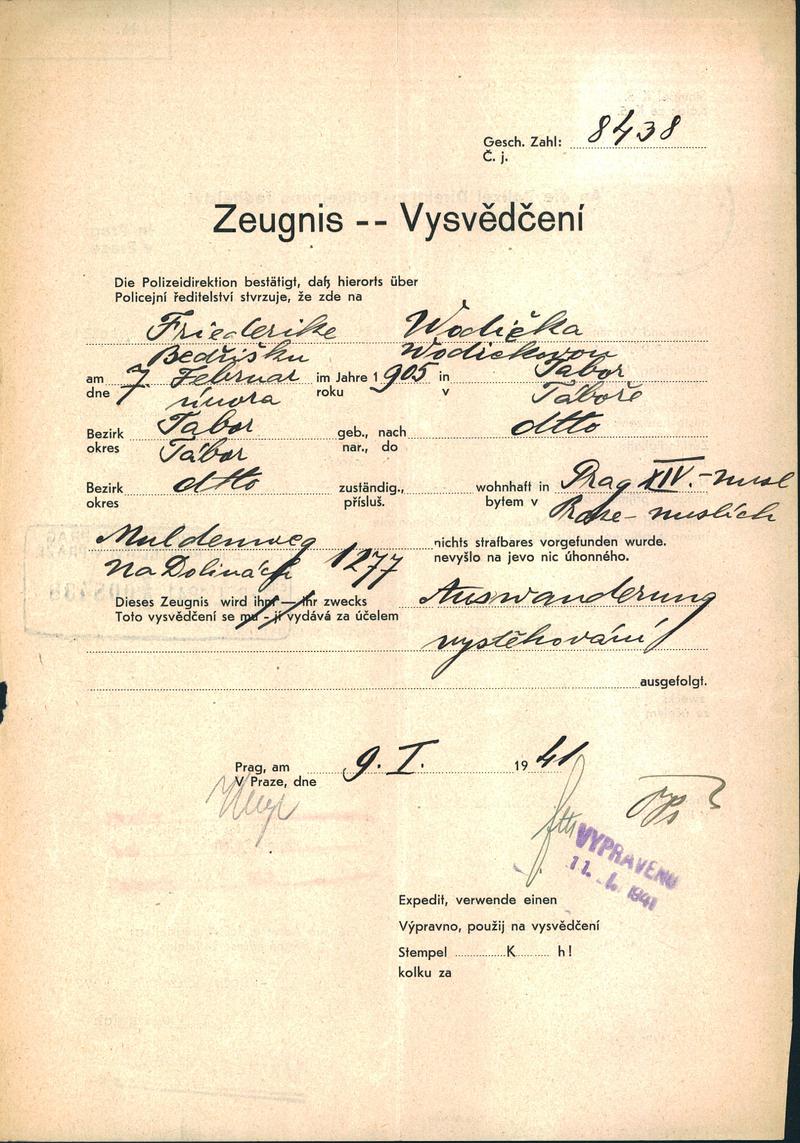 Gesch. Zahl: 8438
Č. j.
Zeugnis -- Vysvědčení
Die Polizeidirektion bestätigt, daß hierorts über
Policejní ředitelství stvrzuje, že zde na
Friederike Wodička
Bedřišku Wodičkovou
am 7. Februar im Jahre 1905 in Tabor
dne února roku v Táboře
Bezirk Tabor geb., nach dtto
okres Tábor nar., do
Bezirk dtto zuständig., wohnhaft in Prag XIV.-Nusl
okres přísluš. bytem v Praze-Nuslích
Muldenweg nichts strafbares vorgefunden wurde.
Na Dolinách 1277 nevyšlo na jevo nic úhonného.
Dieses Zeugnis wird ihm — ihr zwecks Auswanderung
Toto vysvědčení se mu - jí vydává za účelem vystěhování
ausgefolgt.
Prag, am 9. I. 1941
V Praze, dne
VYPRAVENO
11. I. 1941
Expedit, verwende einen
Výpravno, použij na vysvědčení
Stempel K h!
kolku za